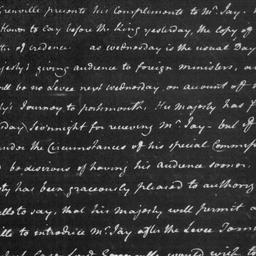 Grenville presents his Compliments to Mr. Jay.
known to lay before the King yesterday, the Copy of
of credence as wednesday is the usual Day
Majesty's giving audience to foreign ministers, and
will be no Levee next wednesday on account of
Journey to portsmouth. His Majesty has
day Se'nnight for receiving Mr. Jay - but
under the Circumstances of his special Commis
be desirous of having his audience sooner.
has been graciously pleased to authorize
to say, that his Majesty will permit
to introduce Mr. Jay after the Levee Tomo
Lord Grenville would wish to